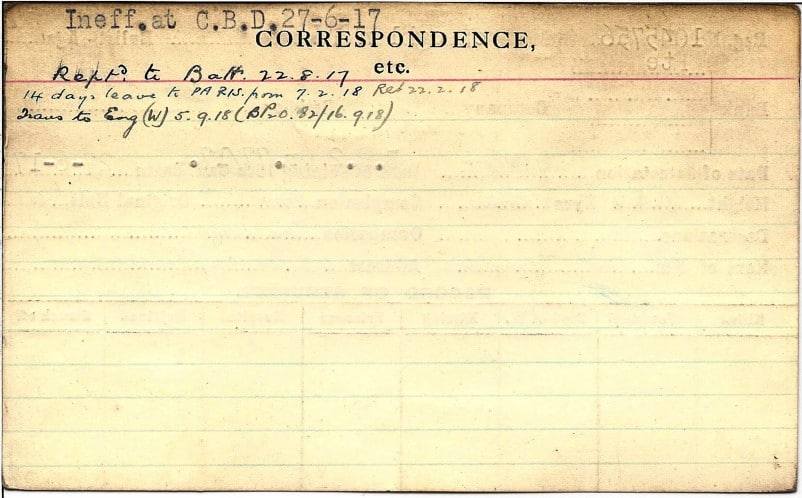 Ineff. at C.B.D. 27-6-17
CORRESPONDENCE,
etc.
Rept'd to Batt. 22.8.17
14 days leave to PARIS. from 7.2.18 Ret 22.2.18
Trans to Eng (W) 5.9.18 (BPzO.82/16.9.18)
1045756